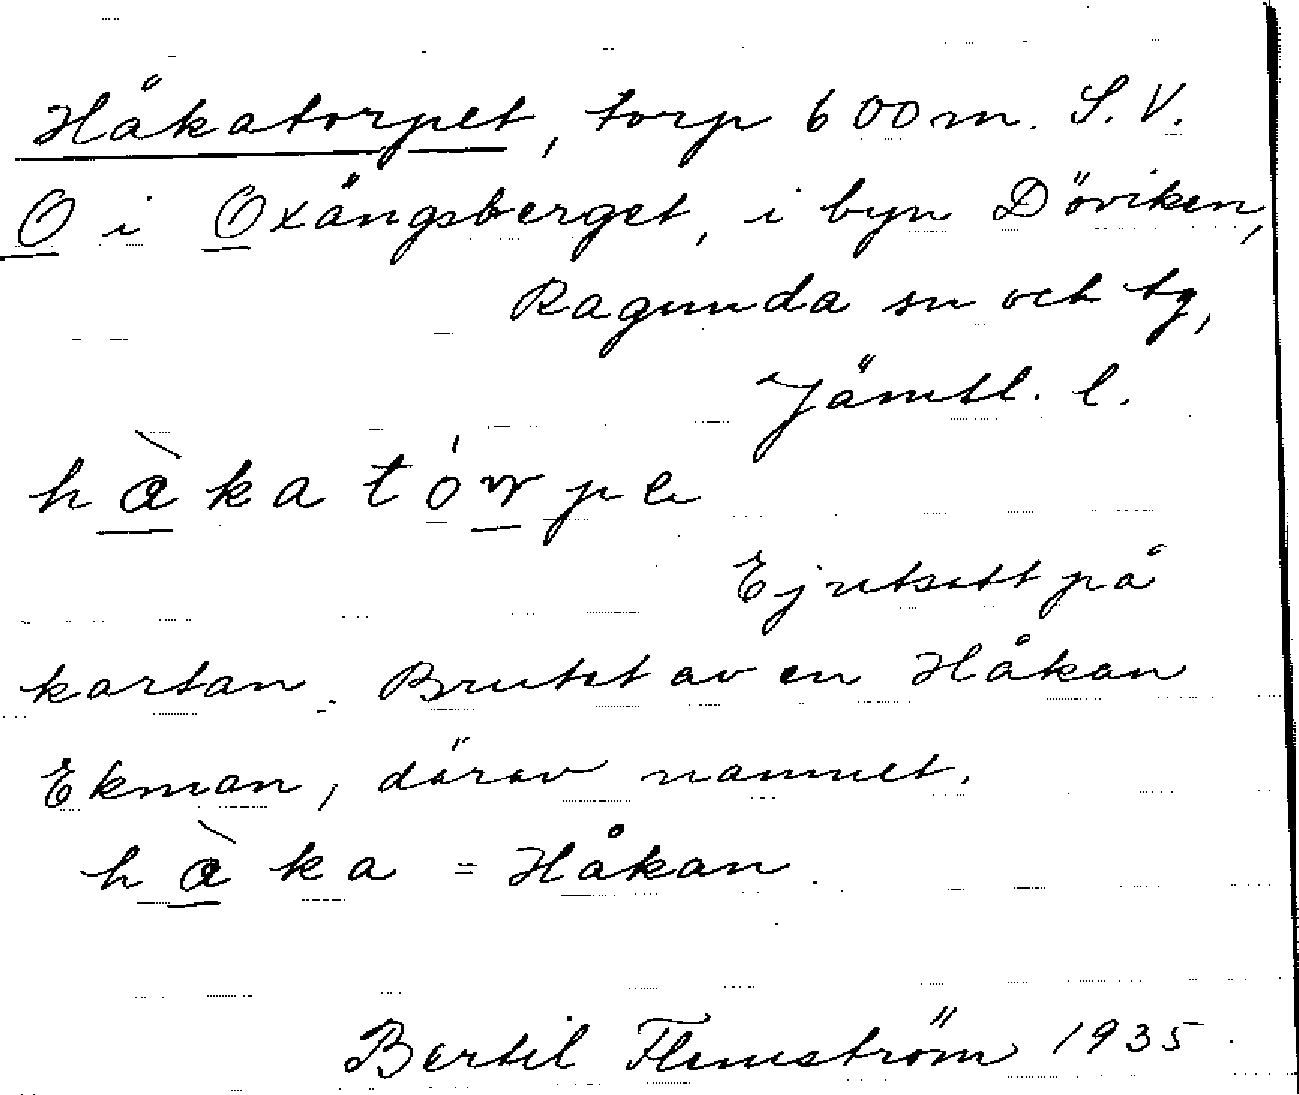 Håkatorpet, torp 600 m. S.V.
O i Oxångsberget, i byn Döviken,
Ragunda sn och tg,
Jämtl. l.
hàkatórpe
Ej utsatt på
kartan. Brutet av en Håkan
Ekman, därav namnet.
hàka = Håkan.
Bertil Flemström 1935